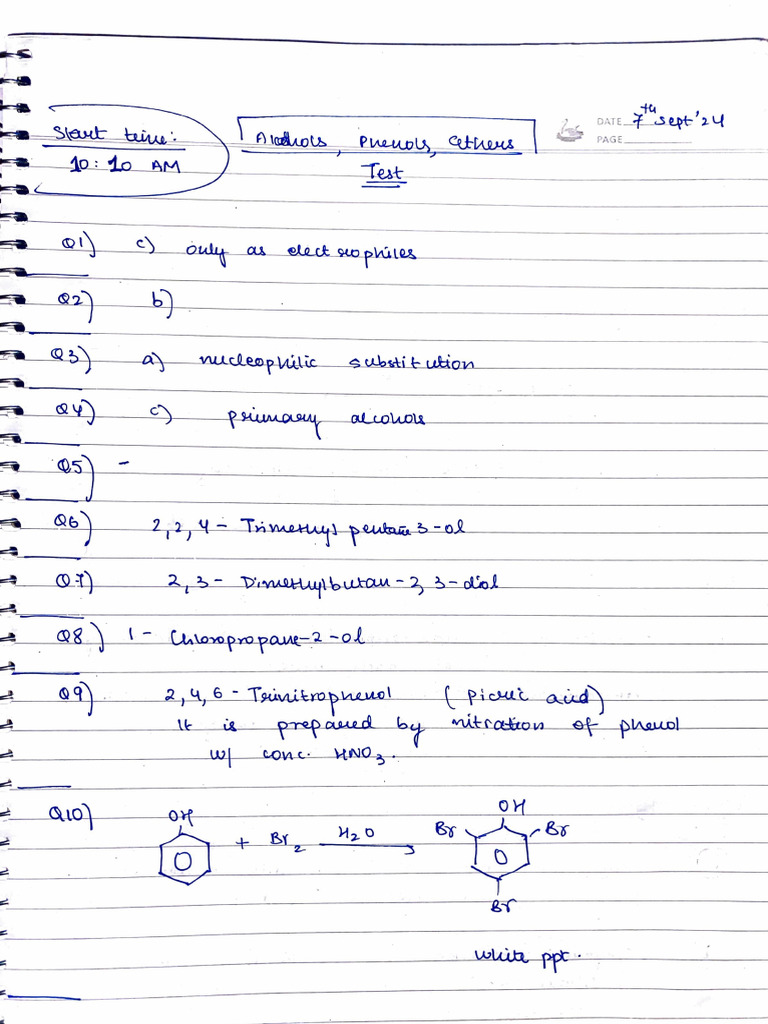 DATE 7th Sept'24
PAGE
Start time:
10:10 AM
Alcohols, Phenols, Ethers
Test
Q1) c) only as electrophiles
Q2) b)
Q3) a) nucleophilic substitution
Q4) c) primary alcohols
Q5) -
Q6) 2,2,4 - Trimethyl pentane 3-ol
Q7) 2,3 - Dimethylbutan-2,3-diol
Q8) 1 - Chloropropane-2-ol
Q9) 2,4,6 - Trinitrophenol (Picric acid)
It is prepared by nitration of phenol
w/ conc. HNO3.
Q10) OH OH
+ Br2 H2O Br Br
Br
White ppt.